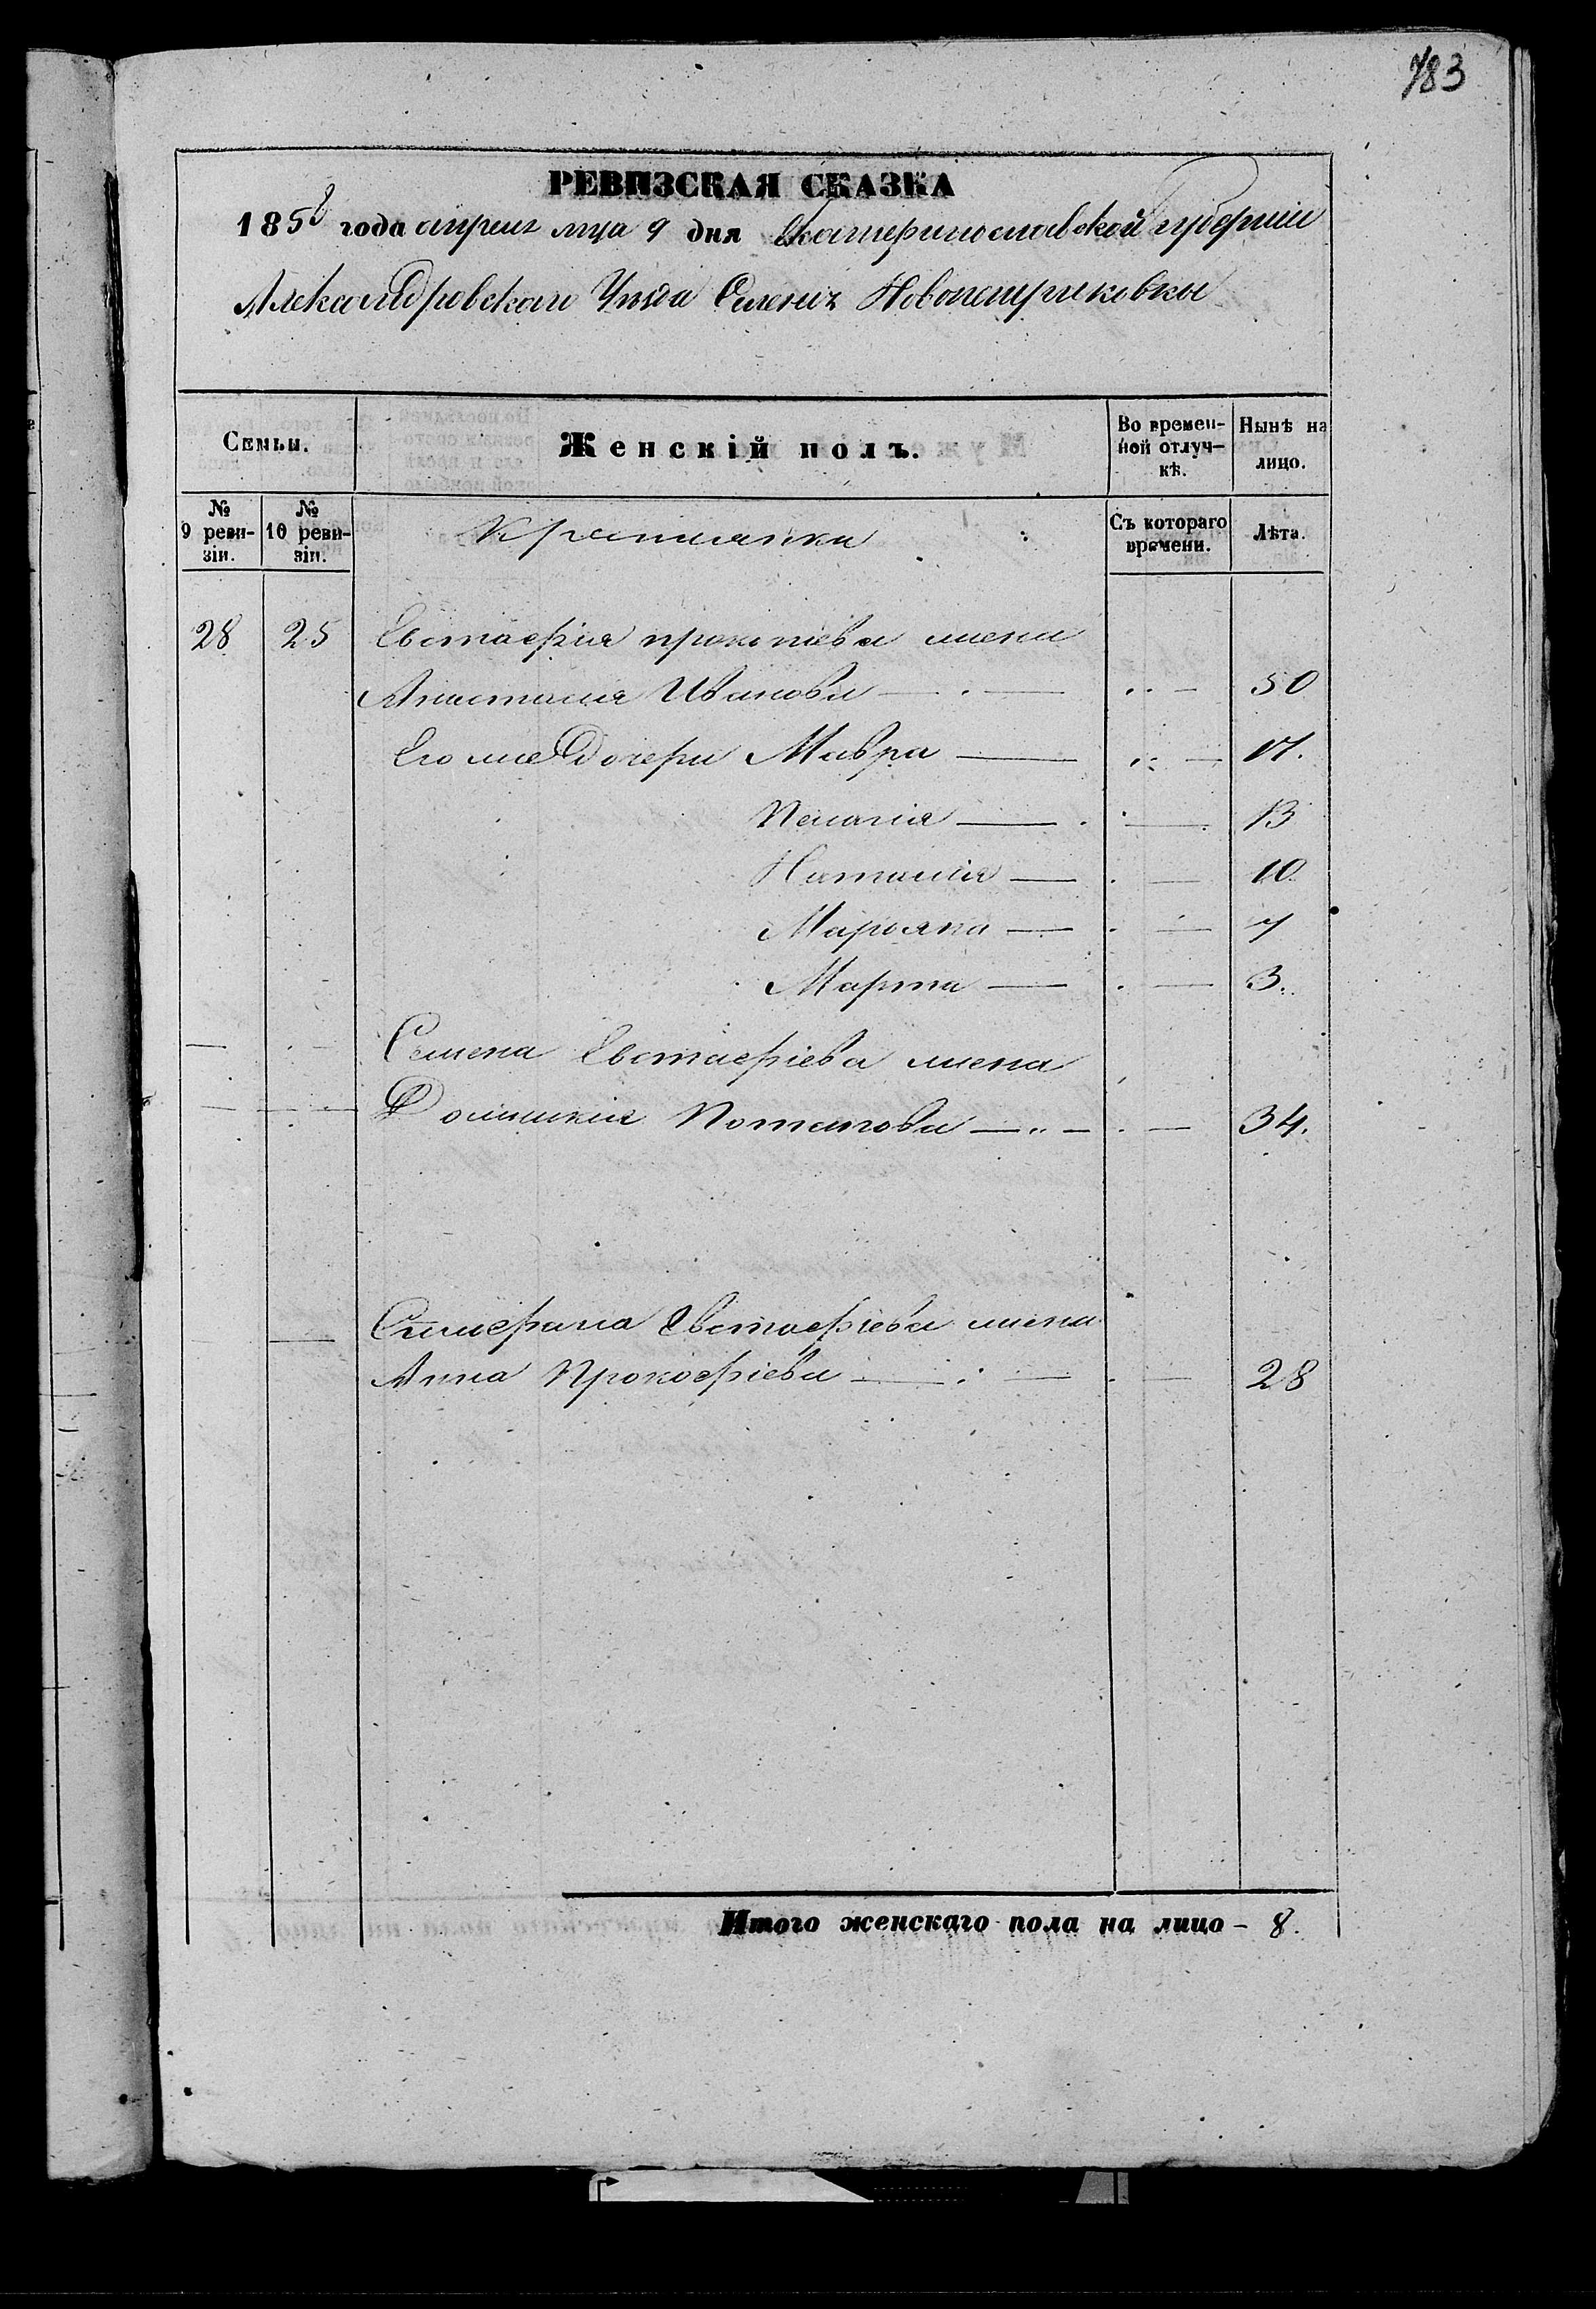 783
РЕВИЗСКАЯ СКАЗКА
1858 года апреля мца 9 дня Екатеринославской губерніи
Александровскаго Уезда Селенія Новопетриковки
Семьи.
Женскій полъ.
Во времен-
ной отлуч-
кѣ.
Нынѣ на
лицо.
№
9 реви-
зіи.
№
10 реви-
зіи.
Крестьянки
Съ котораго
времени.
Лѣта.
28 25 Евстафія прокопіева жена
Анастасія Иванова 50
Его же Дочери Мавра 17.
Пелагія 13
Наталія 10
Марьяна 7
Марта 3.
Семена Евстафіева жена
Домникія Потапова 34.
Евстафіева жена
Анна Прокофіева 28
Итого женскаго пола на лицо - 8.